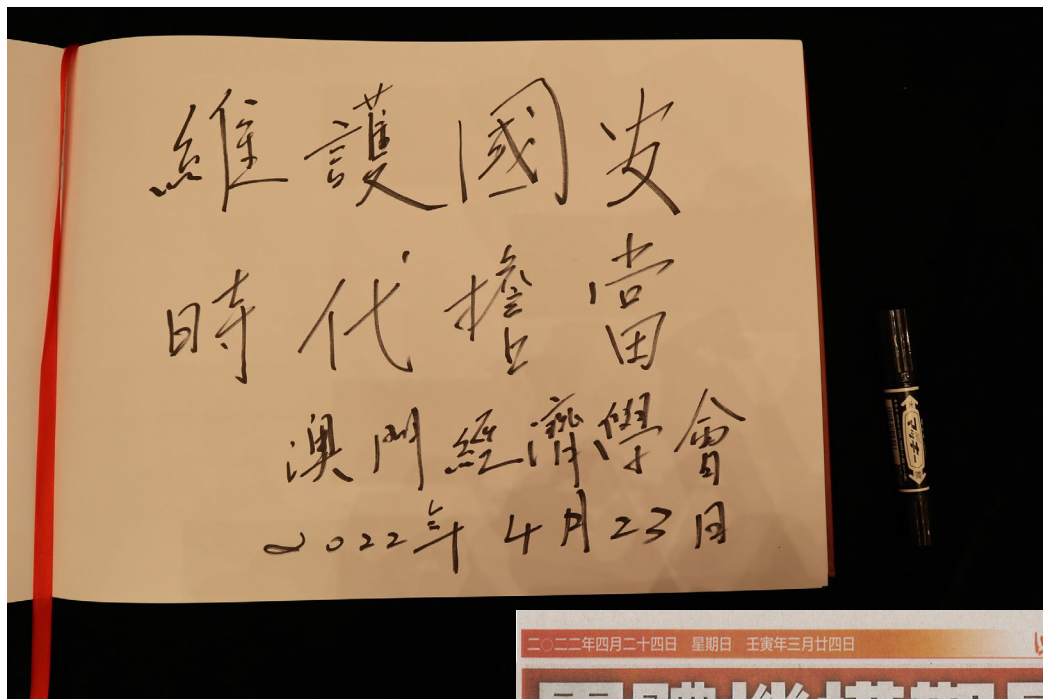 維護國安
時代擔當
澳門經濟學會
2022年4月23日
二〇二二年四月二十四日 星期日 壬寅年三月廿四日